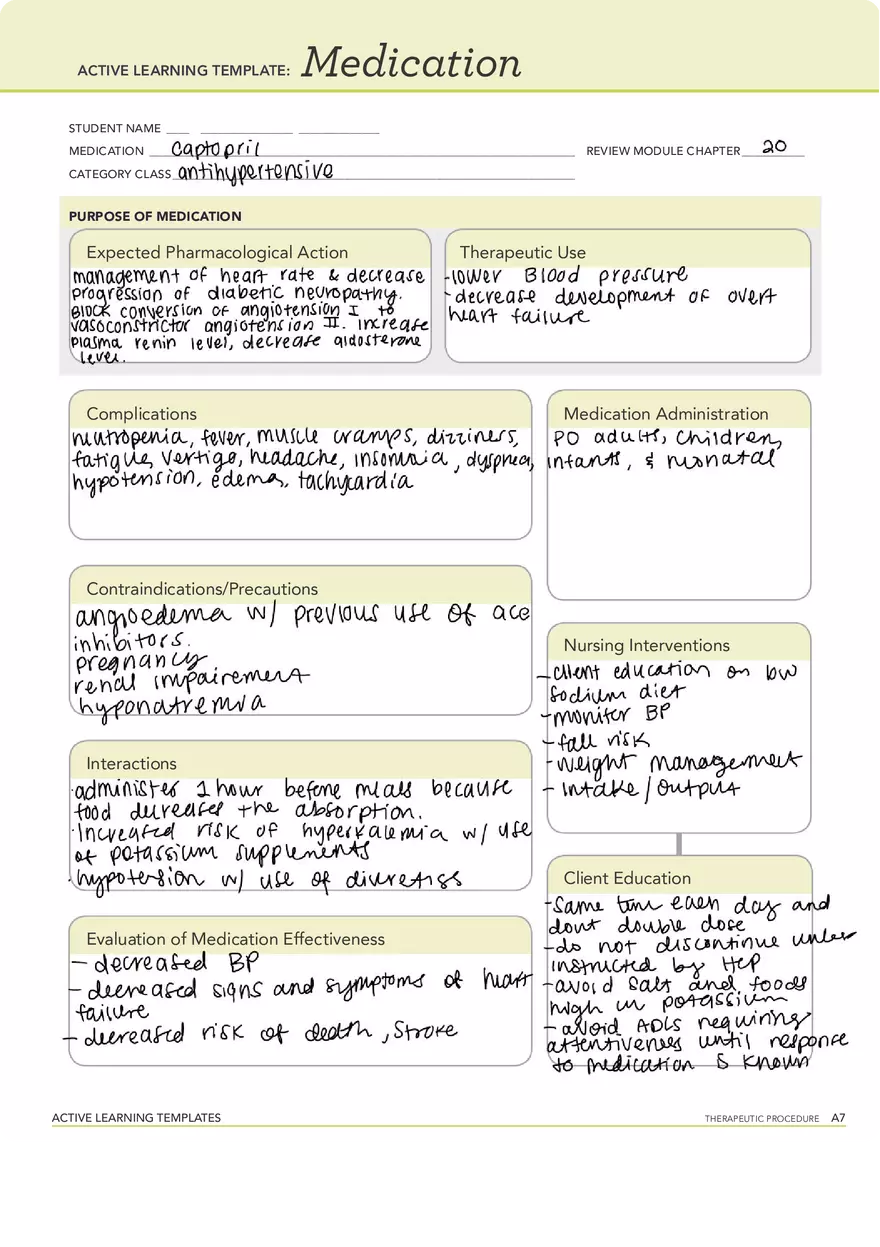 ACTIVE LEARNING TEMPLATE: Medication
STUDENT NAME
MEDICATION captopril
REVIEW MODULE CHAPTER 20
CATEGORY CLASS antihypertensive
PURPOSE OF MEDICATION
Expected Pharmacological Action
management of heart rate & decrease
progression of diabetic neuropathy.
Block conversion of angiotension I to
vasoconstrictor angiotension II. increase
plasma renin level, decrease aldosterone
level.
Therapeutic Use
-lower Blood pressure
-decrease development of overt
heart failure
Complications
neutropenia, fever, muscle cramps, dizziness,
fatigue, vertigo, headache, insomnia, dyspnea,
hypotension, edema, tachycardia
Medication Administration
PO adults, children,
infants, & neonatal
Contraindications/Precautions
angioedema w/ previous use of ace
inhibitors.
pregnancy
renal impairement
hyponatremia
Nursing Interventions
-client education on low
sodium diet
-monitor BP
-fall risk
-weight management
-intake/output
Interactions
·administer 1 hour before meals because
food decreases the absorption.
·increased risk of hyperkalemia w/ use
of potassium supplements
·hypotension w/ use of diuretics
Client Education
-same time each day and
dont double dose
-do not discontinue unless
instructed by HCP
-avoid salt and foods
high in potassium
-avoid ADLs requiring
attentiveness until response
to medication is known
Evaluation of Medication Effectiveness
- decreased BP
- decreased signs and symptoms of heart
failure
- decreased risk of death, stroke
ACTIVE LEARNING TEMPLATES
THERAPEUTIC PROCEDURE A7